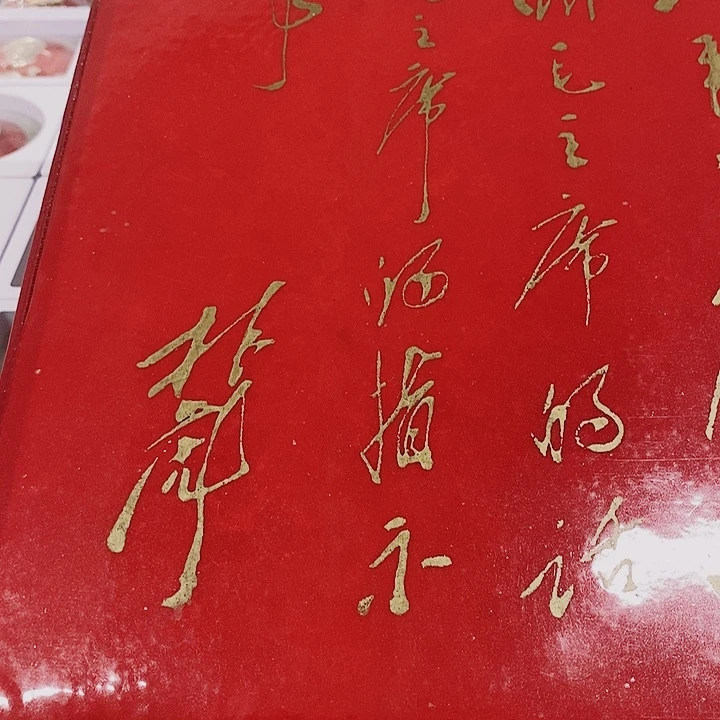 毛主席的话
主席的指示
事
林彪